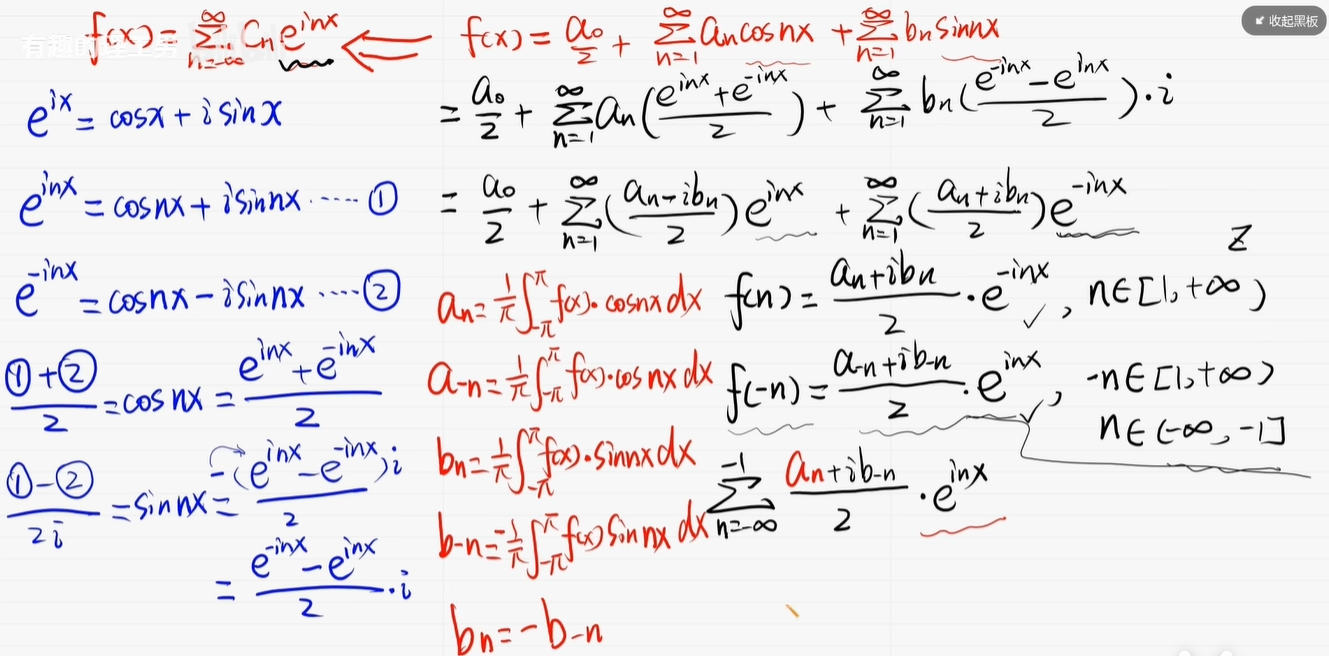 收起黑板
有趣的理工男
f(x)=∑_{n=-∞}^{∞} Cn e^{inx} ⇐ f(x)=a₀/2+∑_{n=1}^{∞} an cosnx+∑_{n=1}^{∞} bn sinnx
=a₀/2+∑_{n=1}^{∞} an((e^{inx}+e^{-inx})/2)+∑_{n=1}^{∞} bn((e^{-inx}-e^{inx})/2)·i
=a₀/2+∑_{n=1}^{∞}((an-ibn)/2)e^{inx}+∑_{n=1}^{∞}((an+ibn)/2)e^{-inx}
Z
e^{ix}=cosx+isinx
e^{inx}=cosnx+isinnx·····①
e^{-inx}=cosnx-isinnx·····②
(①+②)/2=cosnx=(e^{inx}+e^{-inx})/2
(①-②)/2i=sinnx=-(e^{inx}-e^{-inx})i/2
=(e^{-inx}-e^{inx})/2·i
an=1/π∫_{-π}^{π}f(x)·cosnxdx
a-n=1/π∫_{-π}^{π}f(x)·cosnxdx
bn=1/π∫_{-π}^{π}f(x)·sinnxdx
b-n=-1/π∫_{-π}^{π}f(x)sinnxdx
bn=-b-n
f(n)=(an+ibn)/2·e^{-inx}, n∈[1,+∞)
f(-n)=(a-n+ib-n)/2·e^{inx}, -n∈[1,+∞)
n∈(-∞,-1]
∑_{n=-∞}^{-1}(an+ib-n)/2·e^{inx}